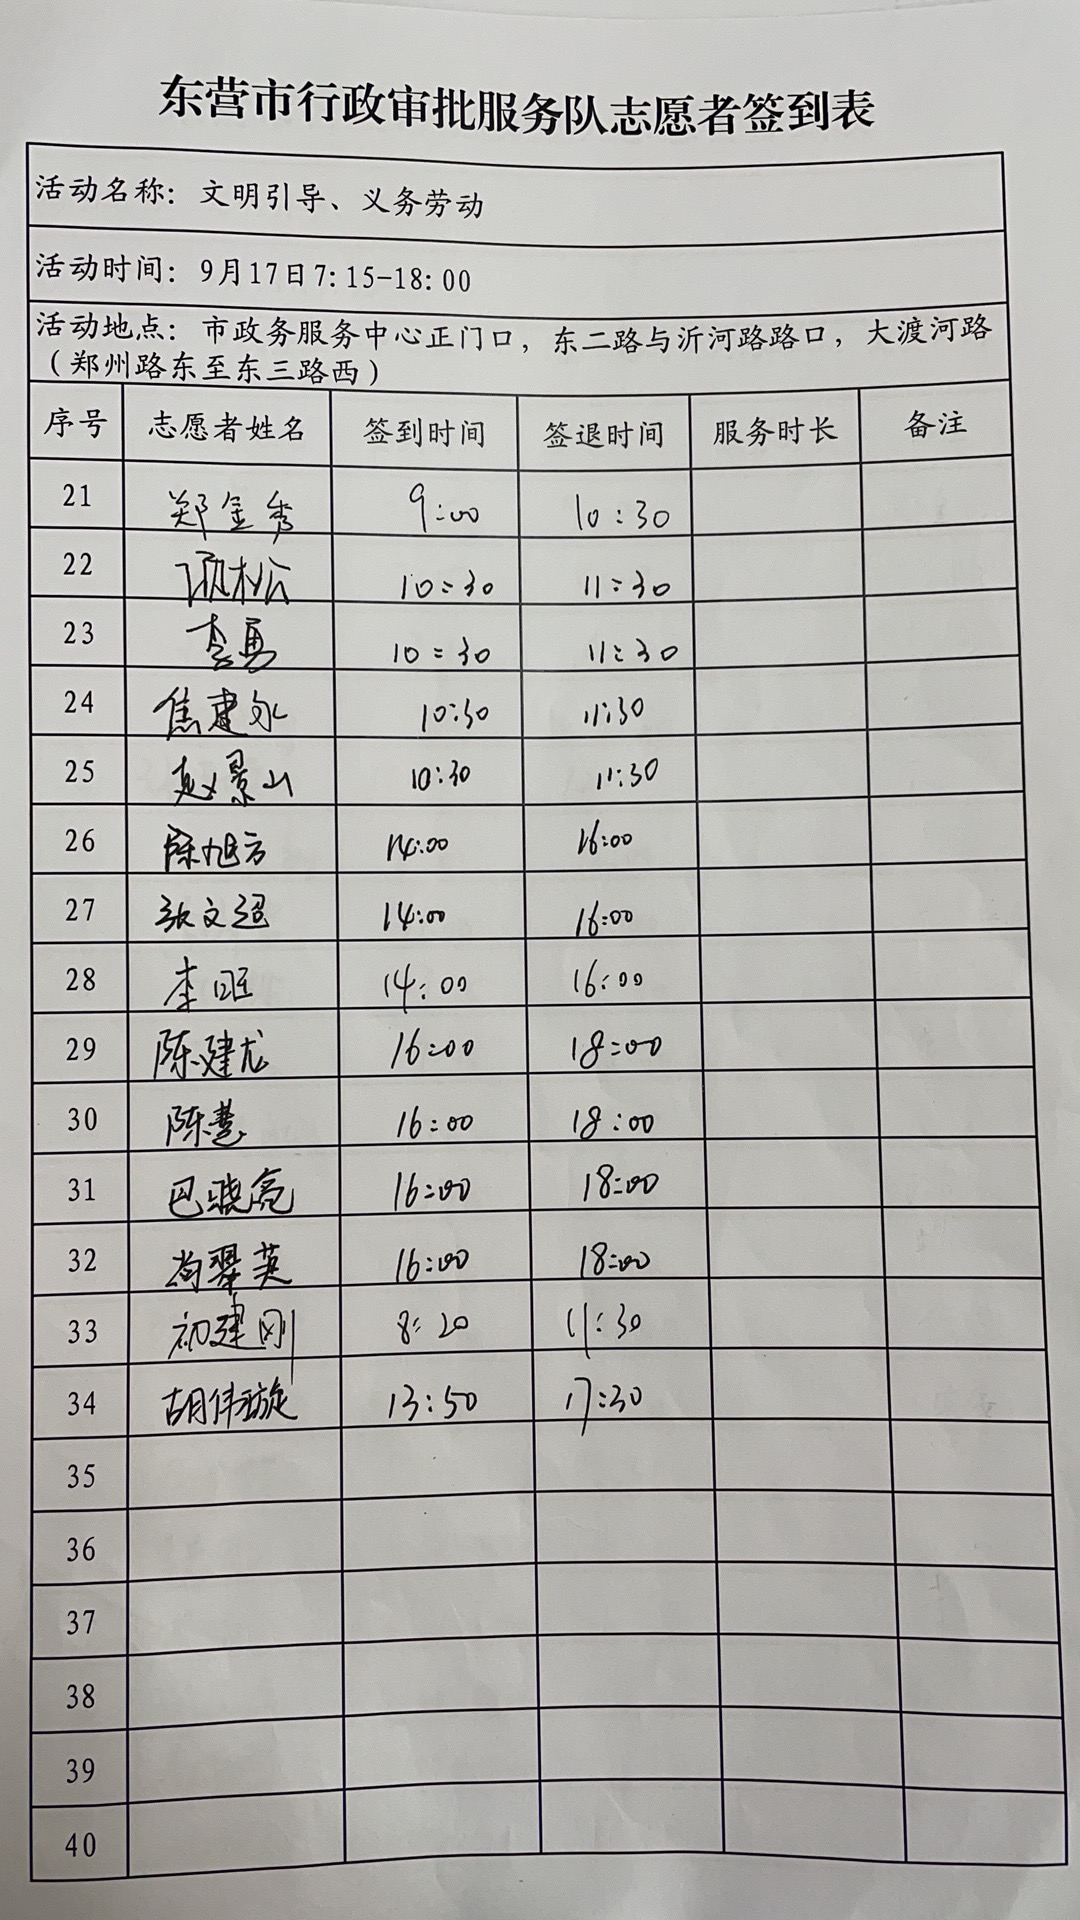 东营市行政审批服务队志愿者签到表
活动名称：文明引导、义务劳动
活动时间：9月17日7:15-18:00
活动地点：市政务服务中心正门口，东二路与沂河路路口，大渡河路
（郑州路东至东三路西）
序号 志愿者姓名 签到时间 签退时间 服务时长 备注
21 郑金秀 9:00 10:30
22 10:30 11:30
23 李勇 10:30 11:30
24 焦建永 10:30 11:30
25 赵景山 10:30 11:30
26 陈旭方 14:00 16:00
27 张文超 14:00 16:00
28 李旺 14:00 16:00
29 陈建龙 16:00 18:00
30 陈慧 16:00 18:00
31 巴晓亮 16:00 18:00
32 尚翠英 16:00 18:00
33 初建刚 8:20 11:30
34 胡伟璇 13:50 17:30
35
36
37
38
39
40